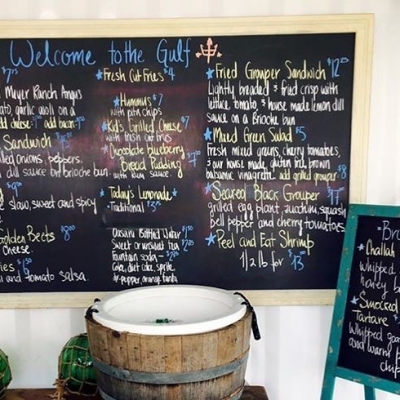 Welcome to the Gulf
$7.75
Meyer Ranch Angus
tomato garlic aioli on a
add cheese add bacon
Sandwich
onions, peppers.
sauce on brioche bun
$9
slaw, sweet and spicy
Golden Beets $8.00
Cheese
and tomato salsa.
Fresh Cut Fries $4
Hummus $7
with pita chips
Kid's Grilled Cheese $7
with fresh cut fries
Chocolate blueberry
Bread Pudding
with sauce
Today's Lemonade
-Traditional $3
Dasani Bottled Water $2
Sweet or unsweet tea $2
Fountain soda - $2
Coke, diet coke, sprite,
dr. pepper, orange fanta
Fried Grouper Sandwich $12.00
Lightly breaded & fried crisp with
lettuce, tomato, & house made lemon dill
sauce on a Brioche bun
Mixed Green Salad $5
fresh mixed greens, cherry tomatoes,
& our house made, gluten free, brown
balsamic vinegrette add grilled grouper $8
Seared Black Grouper
grilled egg plant, zucchini, squash
bell pepper and cherry tomatoes
Peel and Eat Shrimp
1/2 lb for $13
Challah
Whipped
honey
Smoked
Tartare
Whipped
and warm
chips